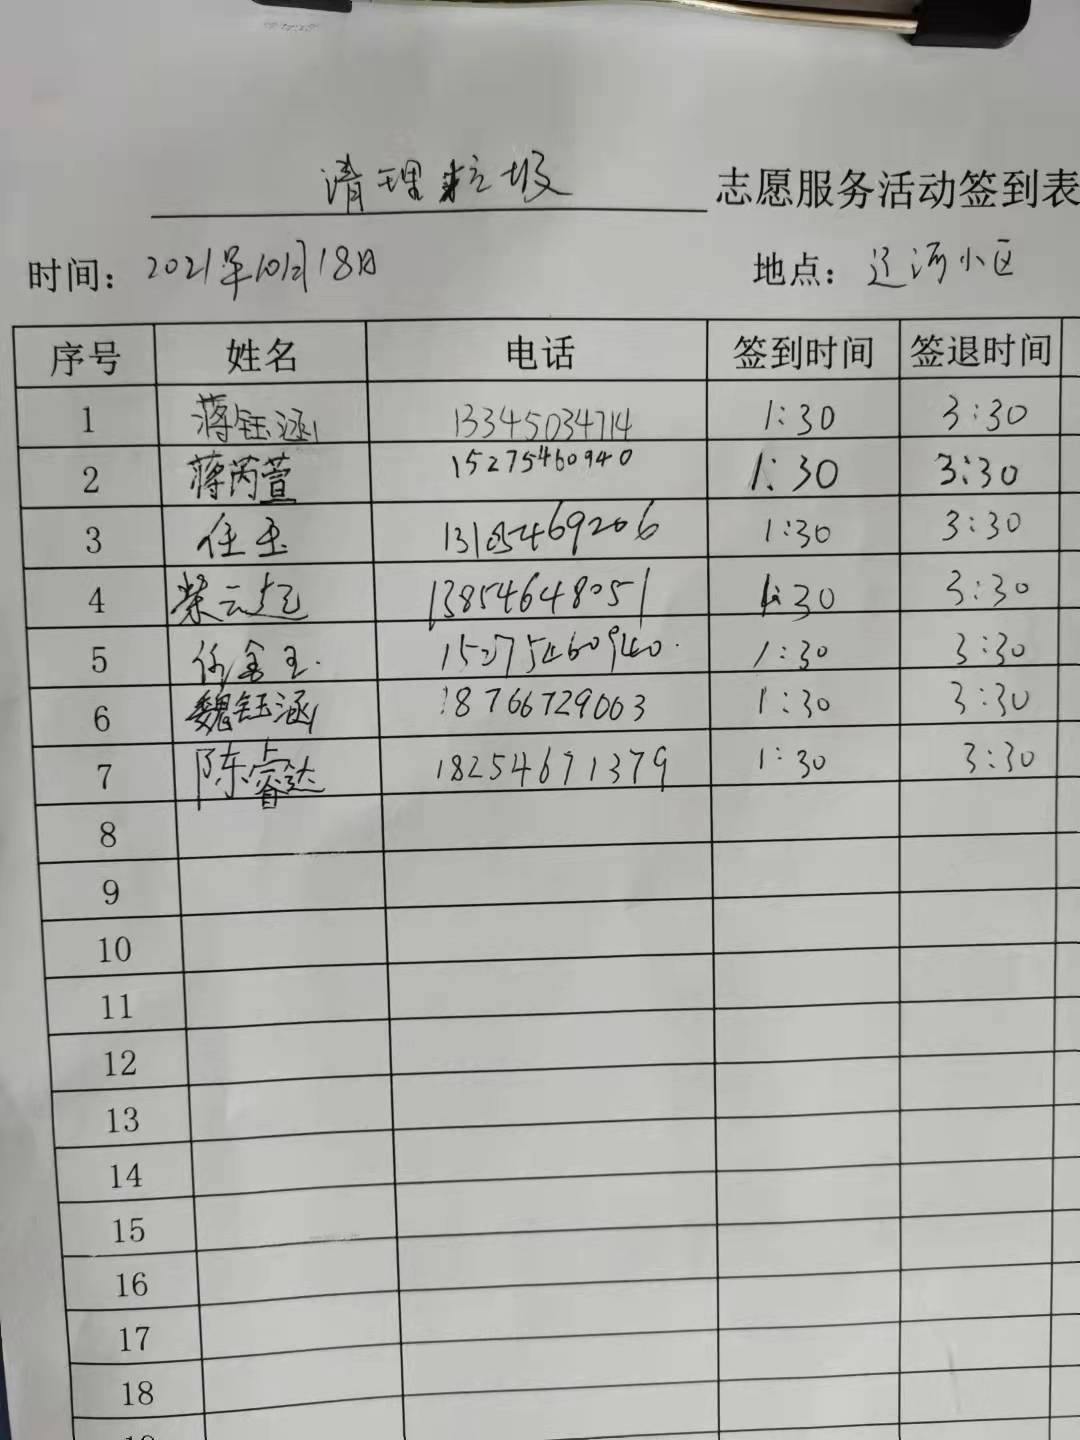 清理垃圾 志愿服务活动签到表
时间：2021年10月18日 地点：辽河小区
序号 姓名 电话 签到时间 签退时间
1 蒋钰涵 13345034714 1:30 3:30
2 蒋芮萱 15275460940 1:30 3:30
3 任玉 13185469206 1:30 3:30
4 荣云超 13854648051 1:30 3:30
5 任金玉 15275460940 1:30 3:30
6 魏钰涵 18766729003 1:30 3:30
7 陈睿达 18254671379 1:30 3:30
8
9
10
11
12
13
14
15
16
17
18